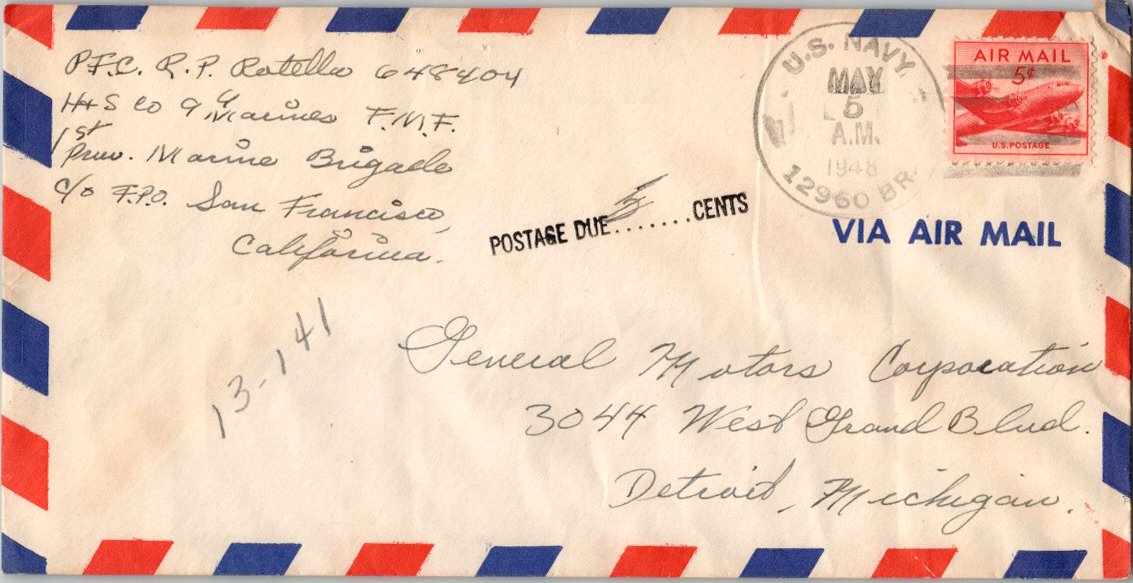 P.F.C. R.P. Rotella 648404
H+S Co 9th Marines F.M.F.
1st Prov. Marine Brigade
C/o F.P.O. San Francisco,
California.
U.S. NAVY
MAY
5
A.M.
1948
12960 BR.
AIR MAIL
5¢
U.S. POSTAGE
POSTAGE DUE 5 .......CENTS
VIA AIR MAIL
13-141
General Motors Corporation
3044 West Grand Blvd.
Detroit, Michigan.